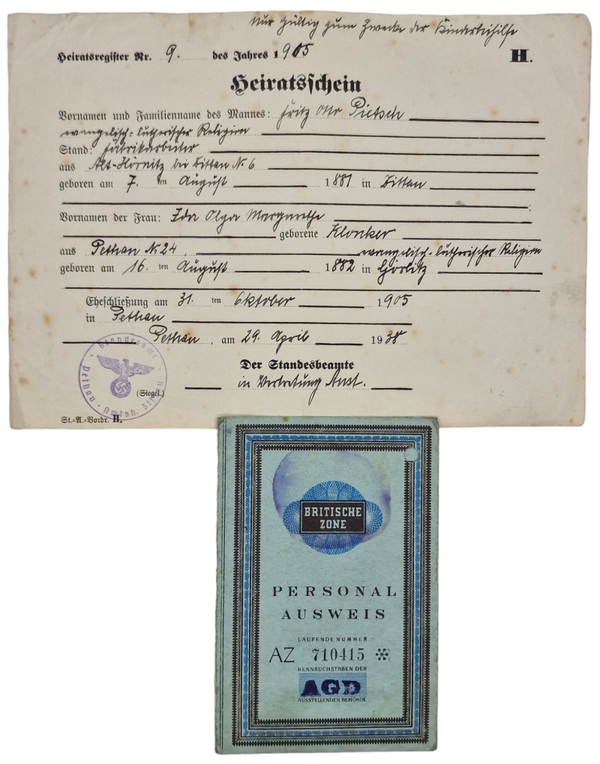 Nur gültig zum Zwecke der Kinderbeihilfe
Heiratsregister Nr. 9. des Jahres 1905 H.
Heiratsschein
Vornamen und Familienname des Mannes: Fritz Otto Pietsch
evangelisch-lutherischer Religion
Stand: Fabrikarbeiter
aus Alt-Hörnitz bei Zittau N. 6
geboren am 7. ten August 1881 in Zittau
;
Vornamen der Frau: Ida Olga Margarethe
geborene Klonker
aus Pethau N. 24, evangelisch-lutherischer Religion
geboren am 16. ten August 1882 in Görlitz
Eheschließung am 31. ten Oktober 1905
in Pethau
Pethau, am 29. April 1938
Der Standesbeamte
in Vertretung
(Siegel.)
Standesamt Pethau
St.-A.-Vordr. H.
BRITISCHE
ZONE
PERSONAL
AUSWEIS
LAUFENDE NUMMER
AZ 710415
KENNBUCHSTABEN DER
AGD
AUSSTELLENDEN BEHÖRDE